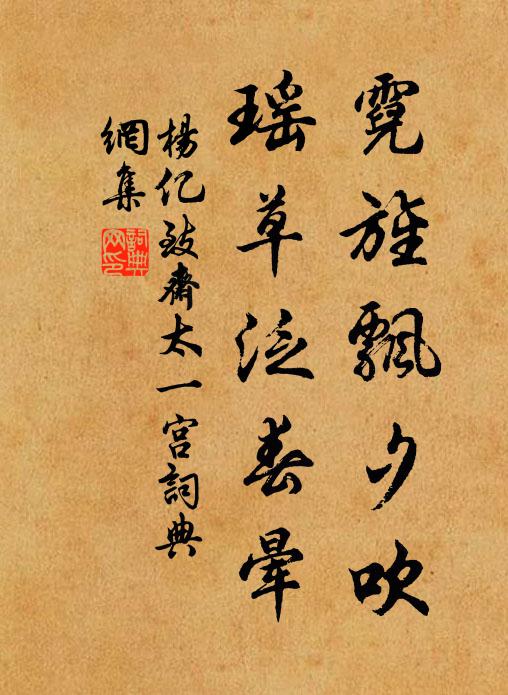 霓旌飄夕吹
瑤草泛春暈
楊億致齋太一宮詞典
網集
詞典網印